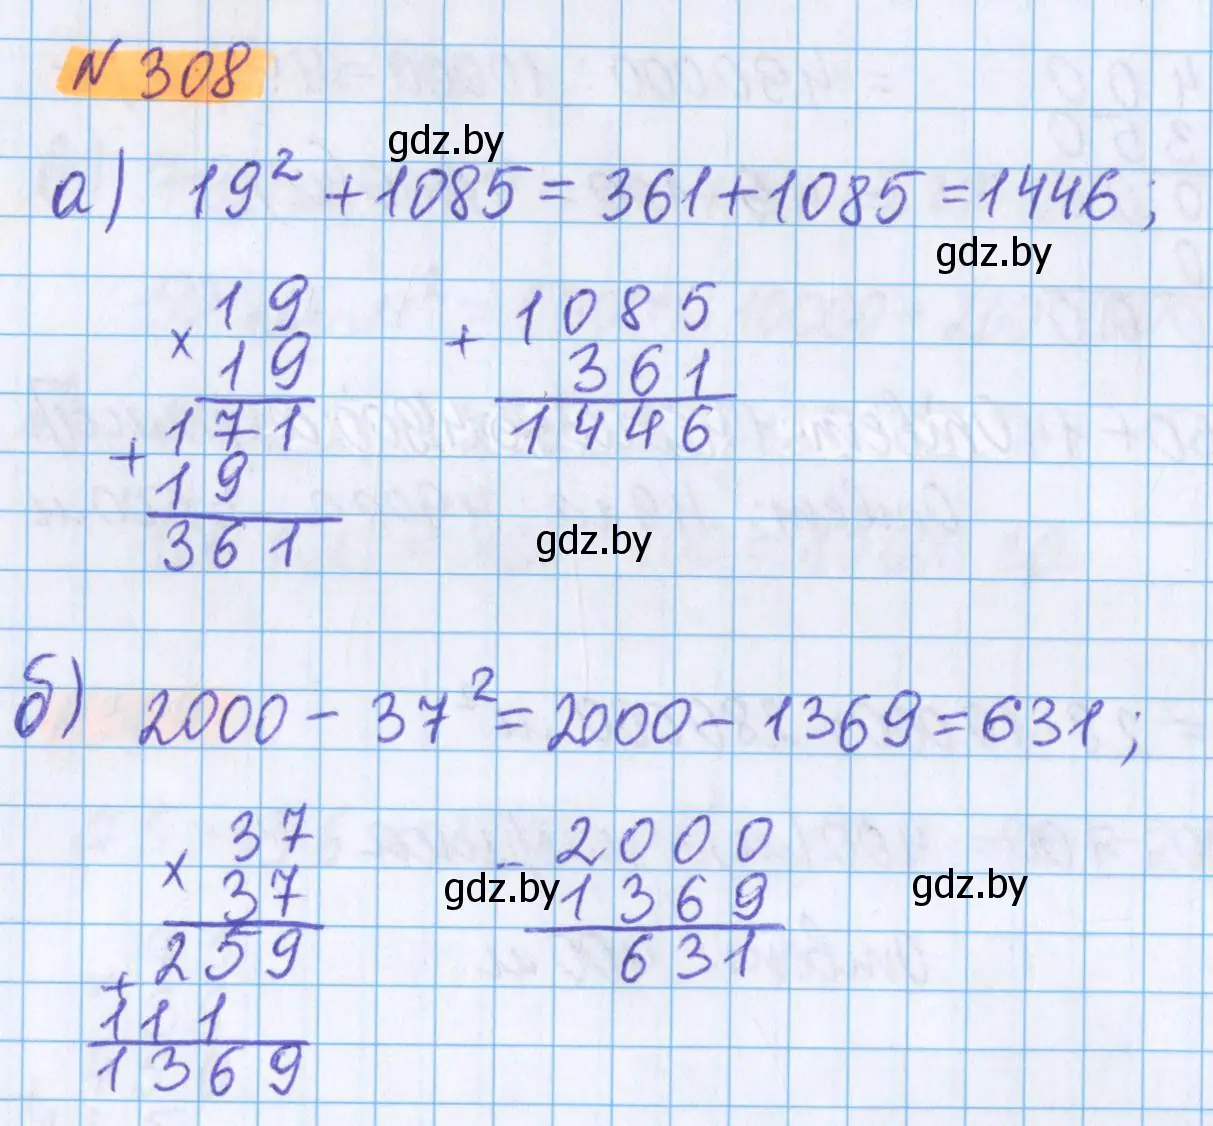 N 308
gdz.by
а) 19² + 1085 = 361 + 1085 = 1446;
gdz.by
× 19
19
171
+ 19
361
+ 1085
361
1446
gdz.by
б) 2000 - 37² = 2000 - 1369 = 631;
× 37
37
259
+ 111
1369
- 2000
1369
631
gdz.by
gdz.by